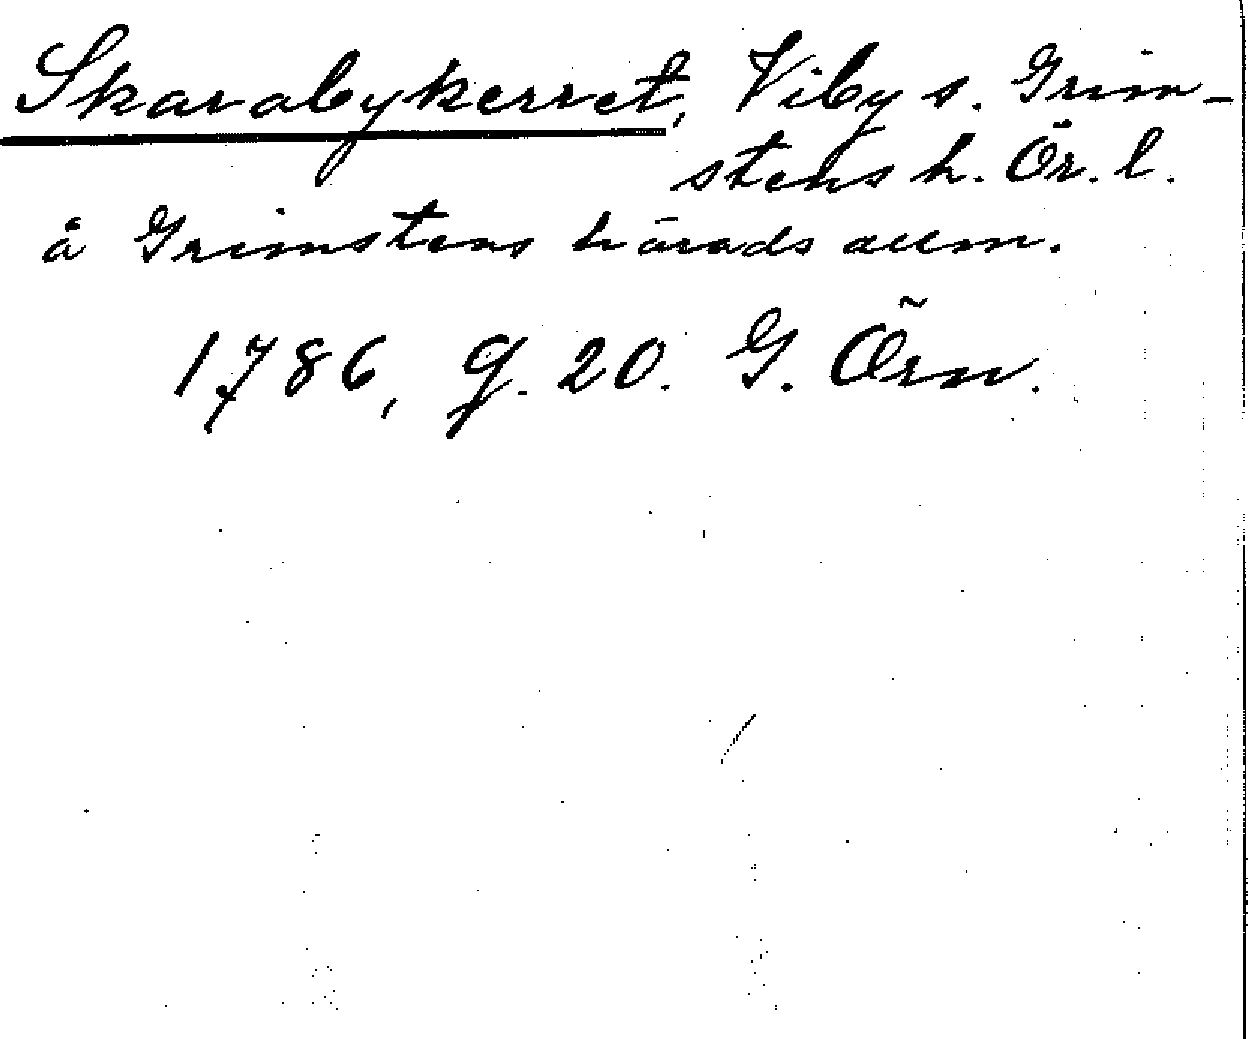 Skarabykerret, Viby s. Grim-
stens h. Ör. l.
å Grimstens härads allm.
1786, g. 20. G. Örn.